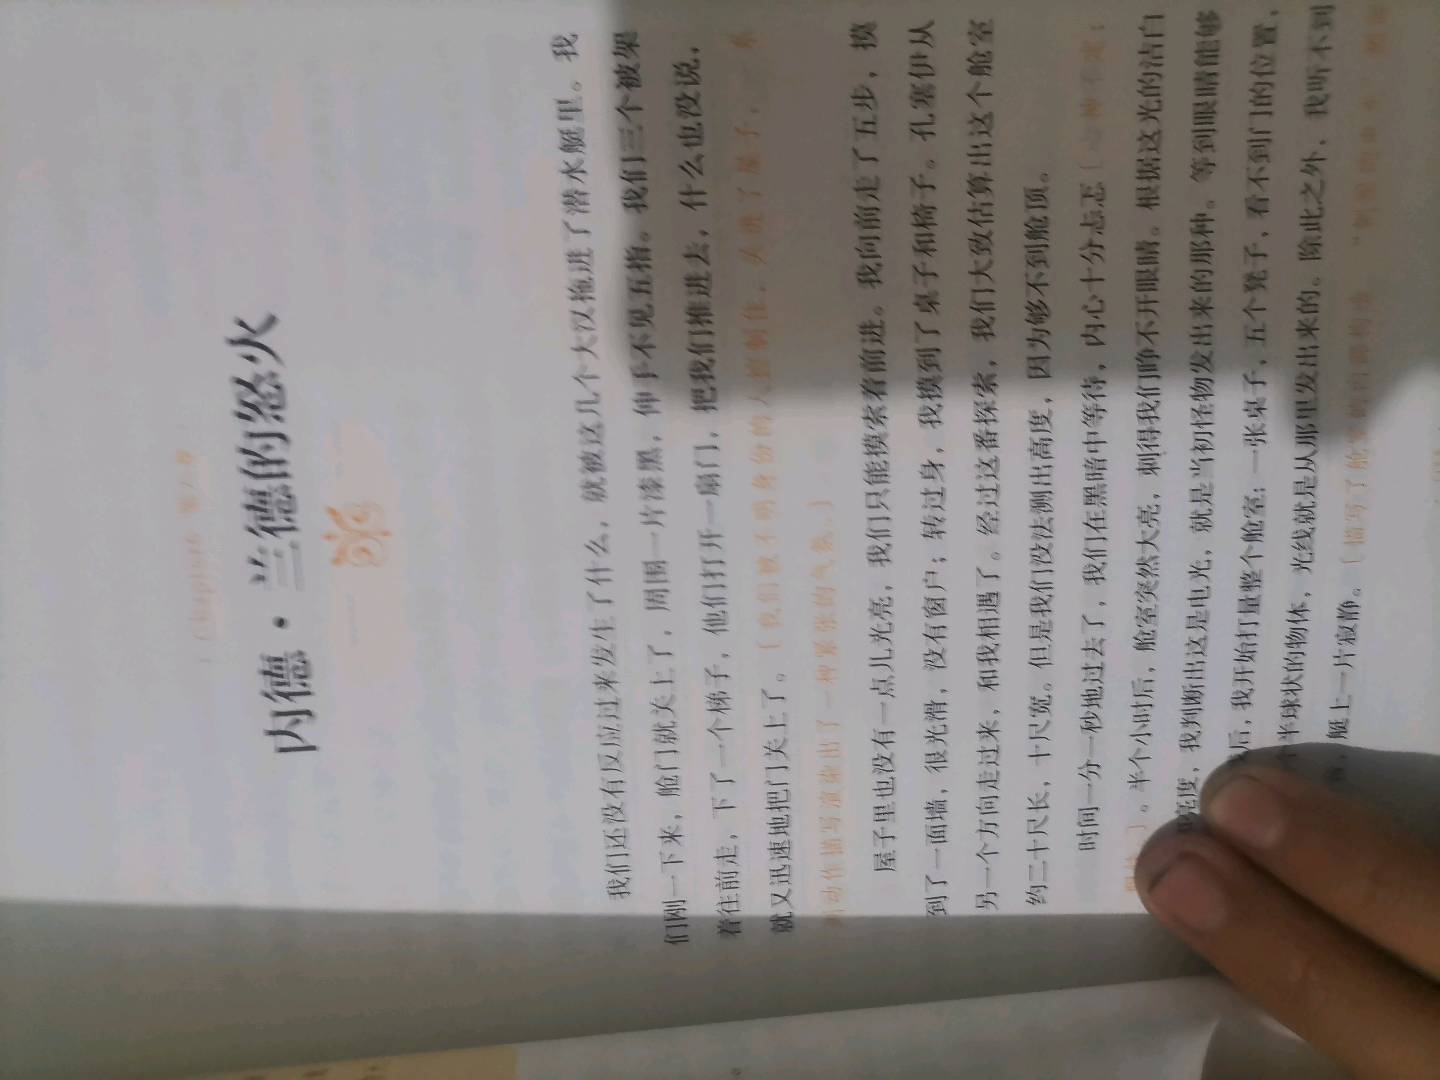 内德·兰德的怒火
我们还没有反应过来发生了什么，就被这几个大汉拖进了潜水艇里。我
们刚一下来，舱门就关上了，周围一片漆黑，伸手不见五指。我们三个被架
着往前走，下了一个梯子，他们打开一扇门，把我们推进去，什么也没说，
就又迅速地把门关上了。（我们被不明身份的人控制住，关进了屋子，
列动作描写渲染出了一种紧张的气氛。）
屋子里也没有一点儿光亮，我们只能摸索着前进。我向前走了五步，摸
到了一面墙，很光滑，没有窗户；转过身，我摸到了桌子和椅子。孔塞伊从
另一个方向走过来，和我相遇了。经过这番探索，我们大致估算出这个舱室
约二十尺长，十尺宽。但是我们没法测出高度，因为够不到舱顶。
时间一分一秒地过去了，我们在黑暗中等待，内心十分忐忑
。半个小时后，舱室突然大亮，刺得我们睁不开眼睛。根据这光的洁白
亮度，我判断出这是电光，就是当初怪物发出来的那种。等到眼睛能够
后，我开始打量整个舱室：一张桌子，五个凳子，看不到门的位置，
个半球状的物体，光线就是从那里发出来的。除此之外，我听不到
艇上一片寂静。（描写了舱室的